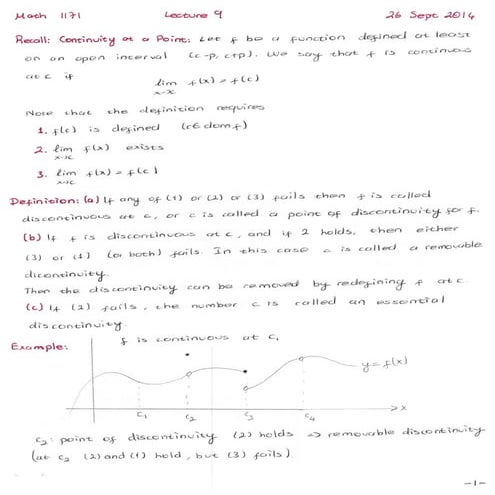 Math 1171 Lecture 9 26 Sept 2014
Recall: Continuity at a Point: Let f be a function defined at least
on an open interval (c-p, c+p). We say that f is continuous
at c if
lim f(x) = f(c)
x→c
Note that the definition requires
1. f(c) is defined (c∈domf)
2. lim f(x) exists
x→c
3. lim f(x) = f(c)
x→c
Definition: (a) If any of (1) or (2) or (3) fails then f is called
discontinuous at c, or c is called a point of discontinuity for f.
(b) If f is discontinuous at c, and if 2 holds, then either
(3) or (1) (or both) fails. In this case c is called a removable
dicontinuity.
Then the discontinuity can be removed by redefining f at c.
(c) If (2) fails, the number c is called an essential
discontinuity.
Example: f is continuous at c₁
y=f(x)
x
c₁ c₂ c₃ c₄
c₂: point of discontinuity (2) holds ⇒ removable discontinuity
(at c₂ (2) and (1) hold, but (3) fails)
-1-